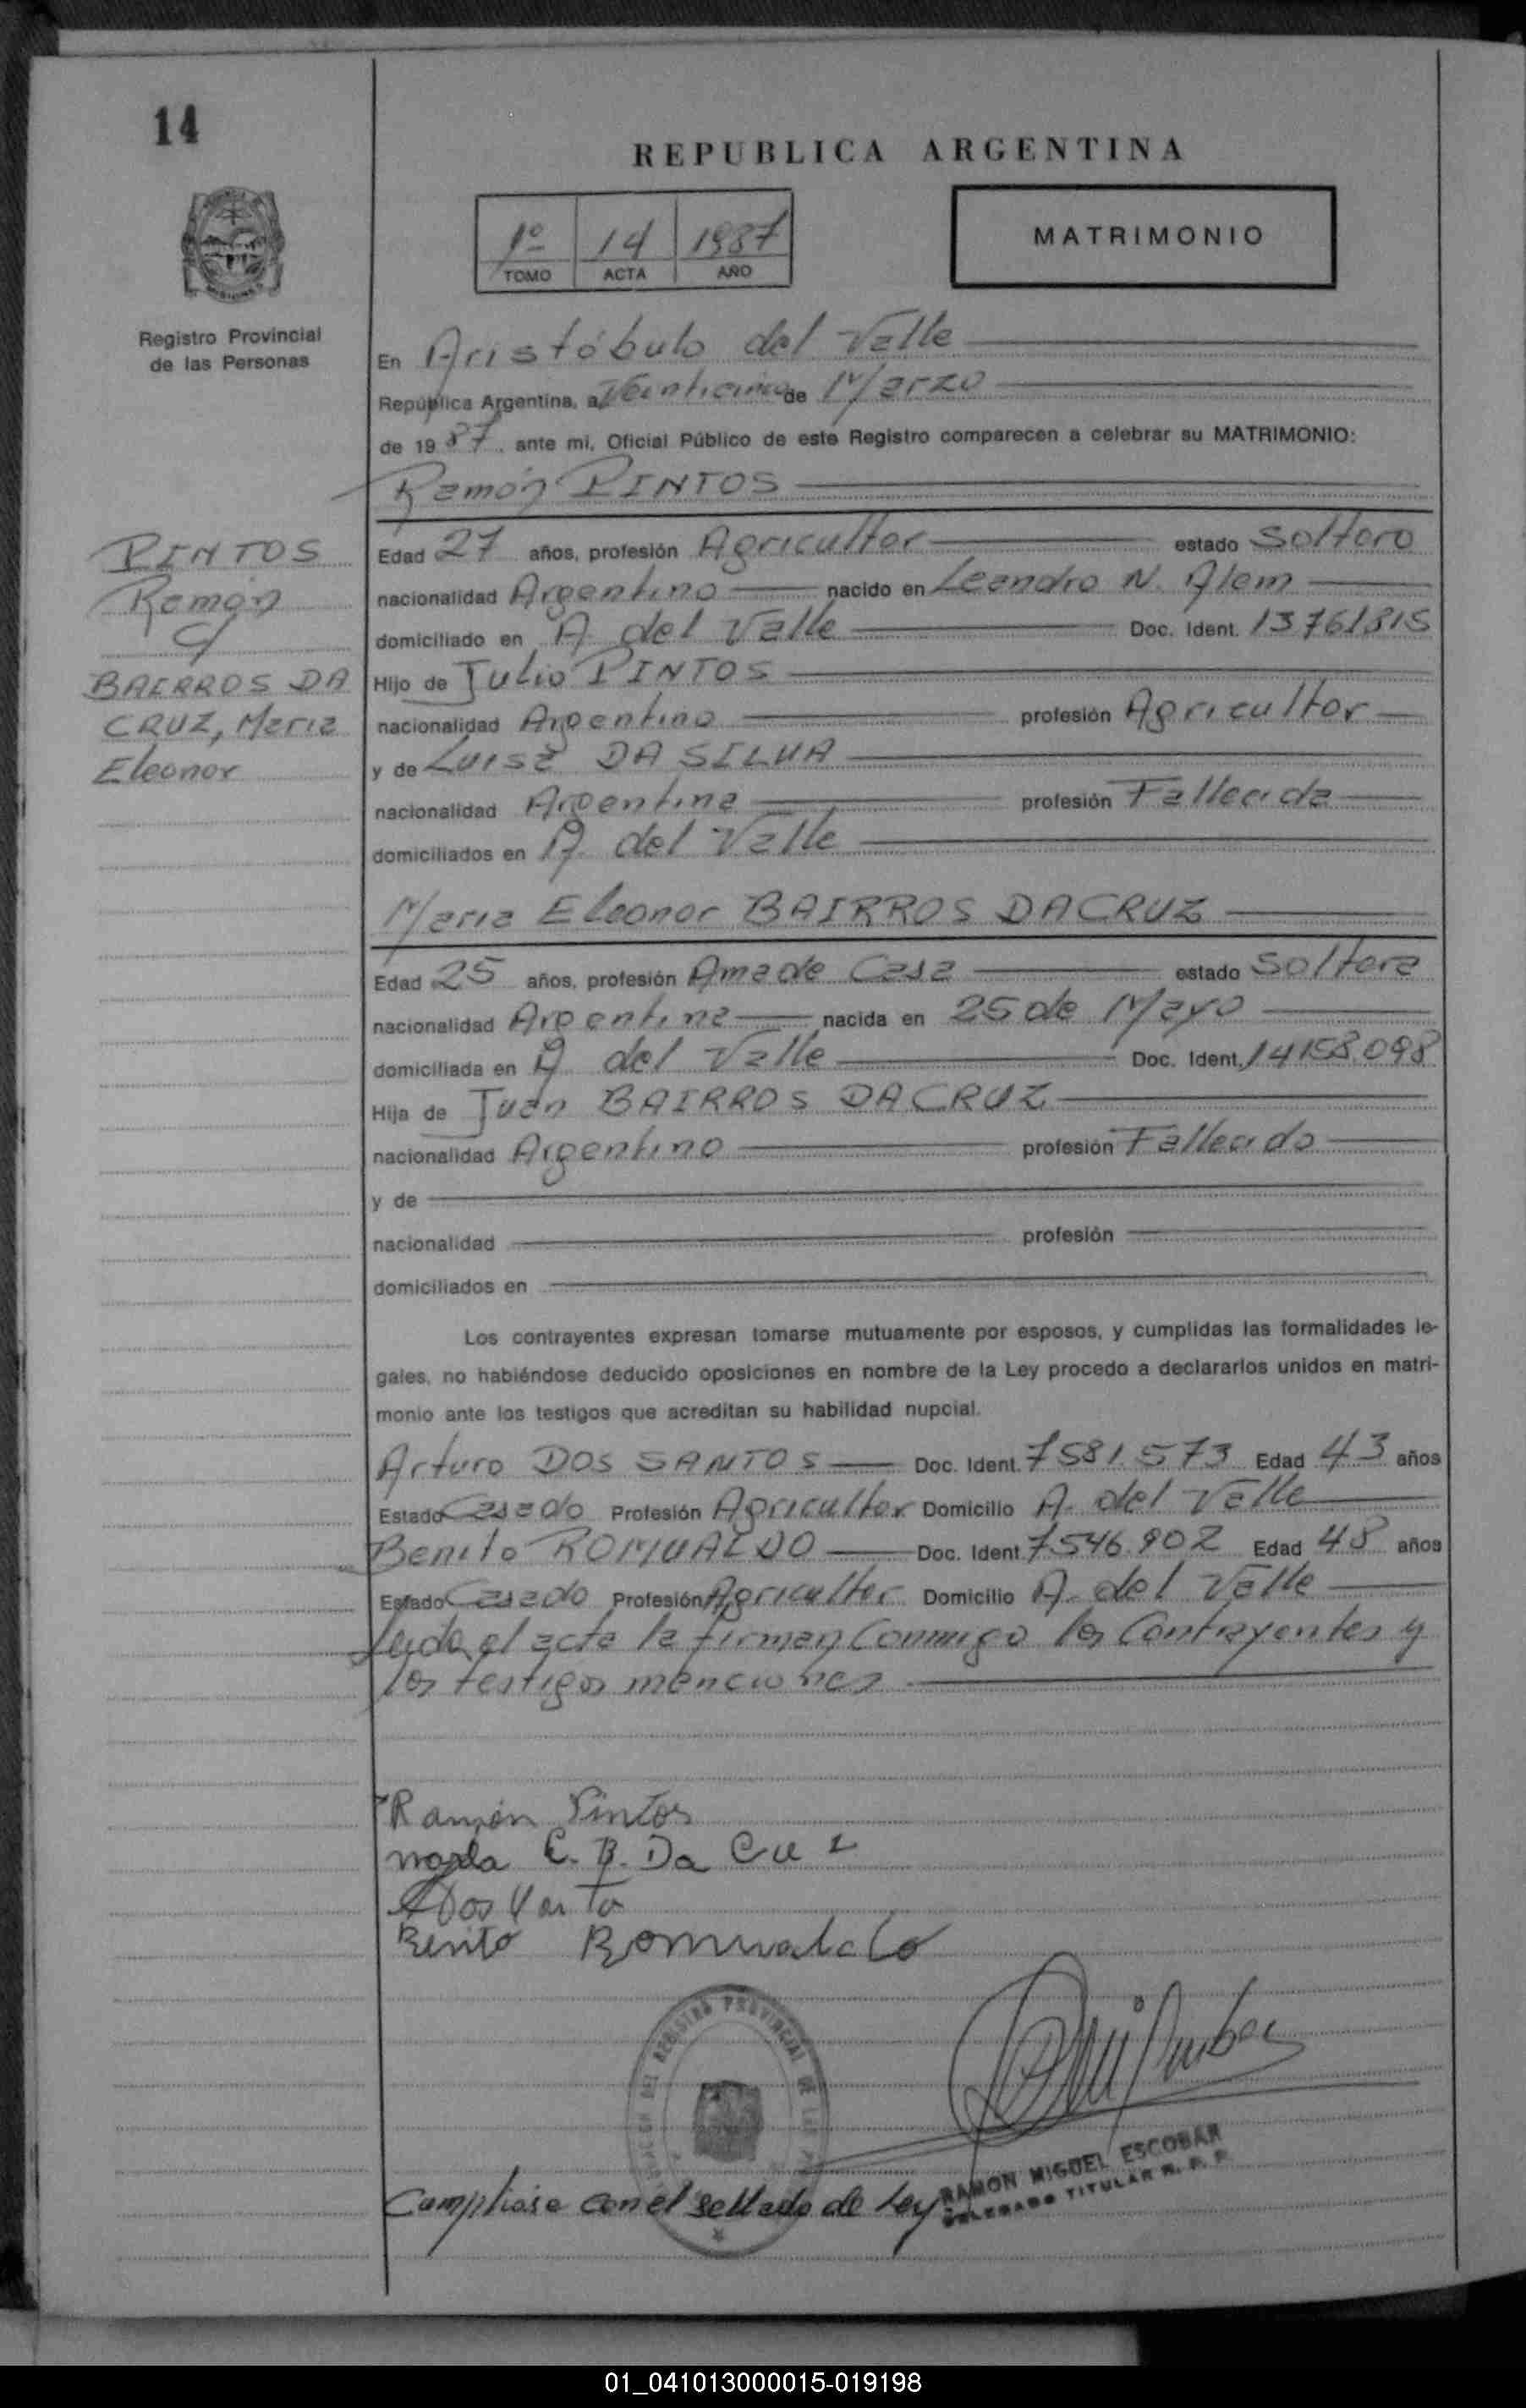 14
REPUBLICA ARGENTINA
1º 14 1987
TOMO ACTA AÑO
MATRIMONIO
Registro Provincial
de las Personas
En Aristóbulo del Valle
República Argentina, a Veinticinco de Marzo
de 1987, ante mi, Oficial Público de este Registro comparecen a celebrar su MATRIMONIO:
Ramón PINTOS
PINTOS
Ramón
c/
BAIRROS DA
CRUZ, Maria
Eleonor
Edad 27 años, profesión Agricultor estado Soltero
nacionalidad Argentino nacido en Leandro N. Alem
domiciliado en A. del Valle Doc. Ident. 13761815
Hijo de Julio PINTOS
nacionalidad Argentino profesión Agricultor
y de Luisa DA SILVA
nacionalidad Argentina profesión Fallecida
domiciliados en A. del Valle
Maria Eleonor BAIRROS DACRUZ
Edad 25 años, profesión Ama de Casa estado Soltera
nacionalidad Argentina nacida en 25 de Mayo
domiciliada en A. del Valle Doc. Ident. 14158.098
Hija de Juan BAIRROS DACRUZ
nacionalidad Argentino profesión Fallecido
y de
nacionalidad profesión
domiciliados en
Los contrayentes expresan tomarse mutuamente por esposos, y cumplidas las formalidades le-
gales, no habiéndose deducido oposiciones en nombre de la Ley procedo a declararlos unidos en matri-
monio ante los testigos que acreditan su habilidad nupcial.
Arturo DOS SANTOS Doc. Ident. 7581.573 Edad 43 años
Estado Casado Profesión Agricultor Domicilio A. del Valle
Benito ROMUALDO Doc. Ident. 7546.902 Edad 48 años
Estado Casado Profesión Agricultor Domicilio A. del Valle
Leida el acta la firman Conmigo los Contrayentes y
los testigos menciones
Ramón Pintos
maria E. B. Da Cuz
Benito Romualdo
REGISTRO PROVINCIAL DE LAS
RAMON MIGUEL ESCOBAR
DELEGADO TITULAR R. P. P.
Cumpliose con el sellado de Ley
01_041013000015-019198